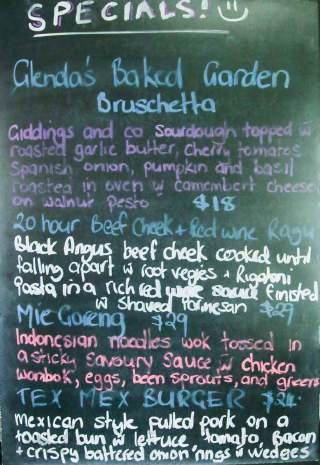 SPECIALS!
Glenda's Baked Garden
Bruschetta
Giddings and co Sourdough topped w
roasted garlic butter, cherry tomatoes
Spanish onion, pumpkin and basil
roasted in oven w camembert cheese
on walnut pesto $18
20 hour Beef Cheek + Red wine Ragu
Black Angus beef cheek cooked until
falling apart w root vegies + Rigatoni
pasta in a rich red wine sauce finished
w shaved parmesan $29
Mie Goreng $29
Indonesian noodles wok tossed in
a sticky savoury Sauce w chicken
wombok, eggs, bean sprouts, and greens
TEX MEX BURGER $24
mexican style pulled pork on a
toasted bun w lettuce, tomato, Bacon
+ crispy battered onion rings w wedges